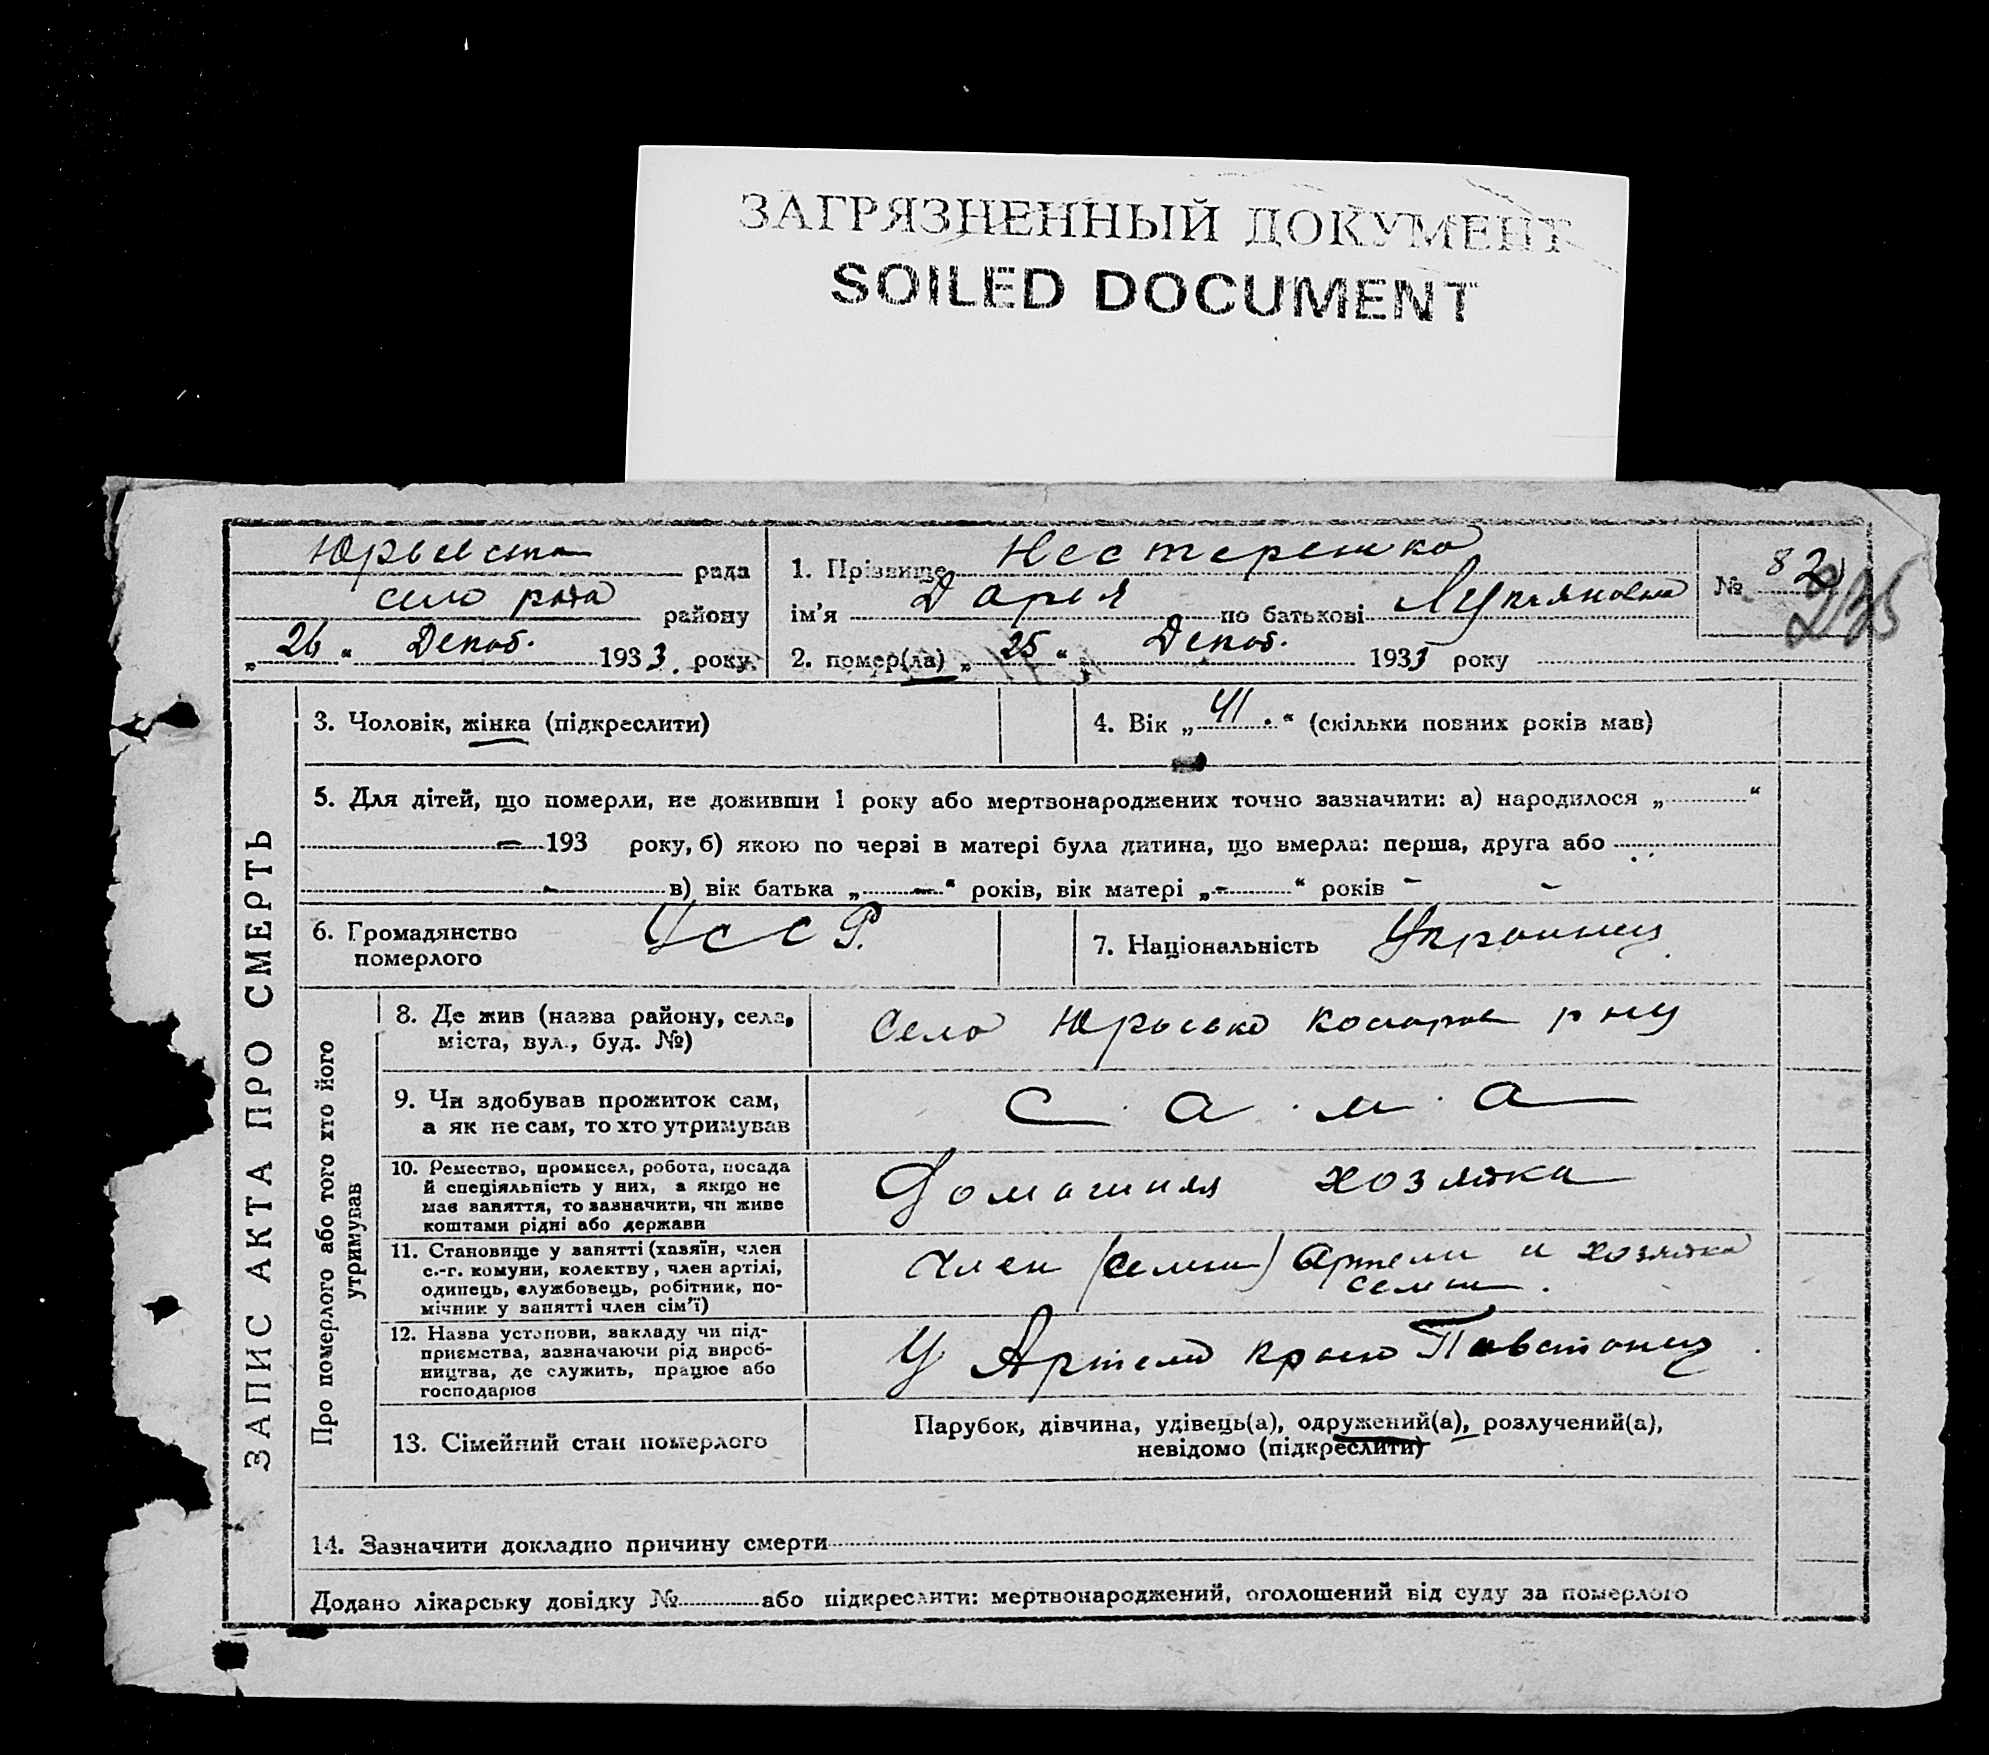 ЗАГРЯЗНЕННЫЙ ДОКУМЕНТ
SOILED DOCUMENT
Юрьевська рада
село рада району
„ 26 “ Декаб. 1933. року
1. Прізвище Нестеренко
ім’я Дарья по батькові Лукяновна
2. помер(ла) „ 25 “ Декаб. 1933 року
№ 82
235
ЗАПИС АКТА ПРО СМЕРТЬ
3. Чоловік, жінка (підкреслити)
4. Вік „ 41 . “ (скільки повних років мав)
5. Для дітей, що померли, не доживши 1 року або мертвонароджених точно зазначити: а) народилося „ “
– 193 року, б) якою по черзі в матері була дитина, що вмерла: перша, друга або
в) вік батька „ – “ років, вік матері „ – “ років – –
6. Громадянство померлого УССР.
7. Національність Украинец
Про померлого або того хто його утримував
8. Де жив (назва району, села, міста, вул., буд. №)
село Юрьевко р ну
9. Чи здобував прожиток сам, а як не сам, то хто утримував
С а м а
10. Ремество, промисел, робота, посада й спеціяльність у них, а якщо не має заняття, то зазначити, чи живе коштами рідні або держави
Домашняя хозяйка
11. Становище у занятті (хазяїн, член с.-г. комуни, колектву, член артілі, одинець, службовець, робітник, помічник у занятті член сім’ї)
Член (семьи) Артели и хозяйка
семьи.
12. Назва установи, закладу чи підприємства, зазначаючи рід виробництва, де служить, працює або господарює
У Артели
13. Сімейний стан померлого
Парубок, дівчина, удівець(а), одружений(а), розлучений(а),
невідомо (підкреслити)
14. Зазначити докладно причину смерти
Додано лікарську довідку № або підкреслити: мертвонароджений, оголошений від суду за померлого